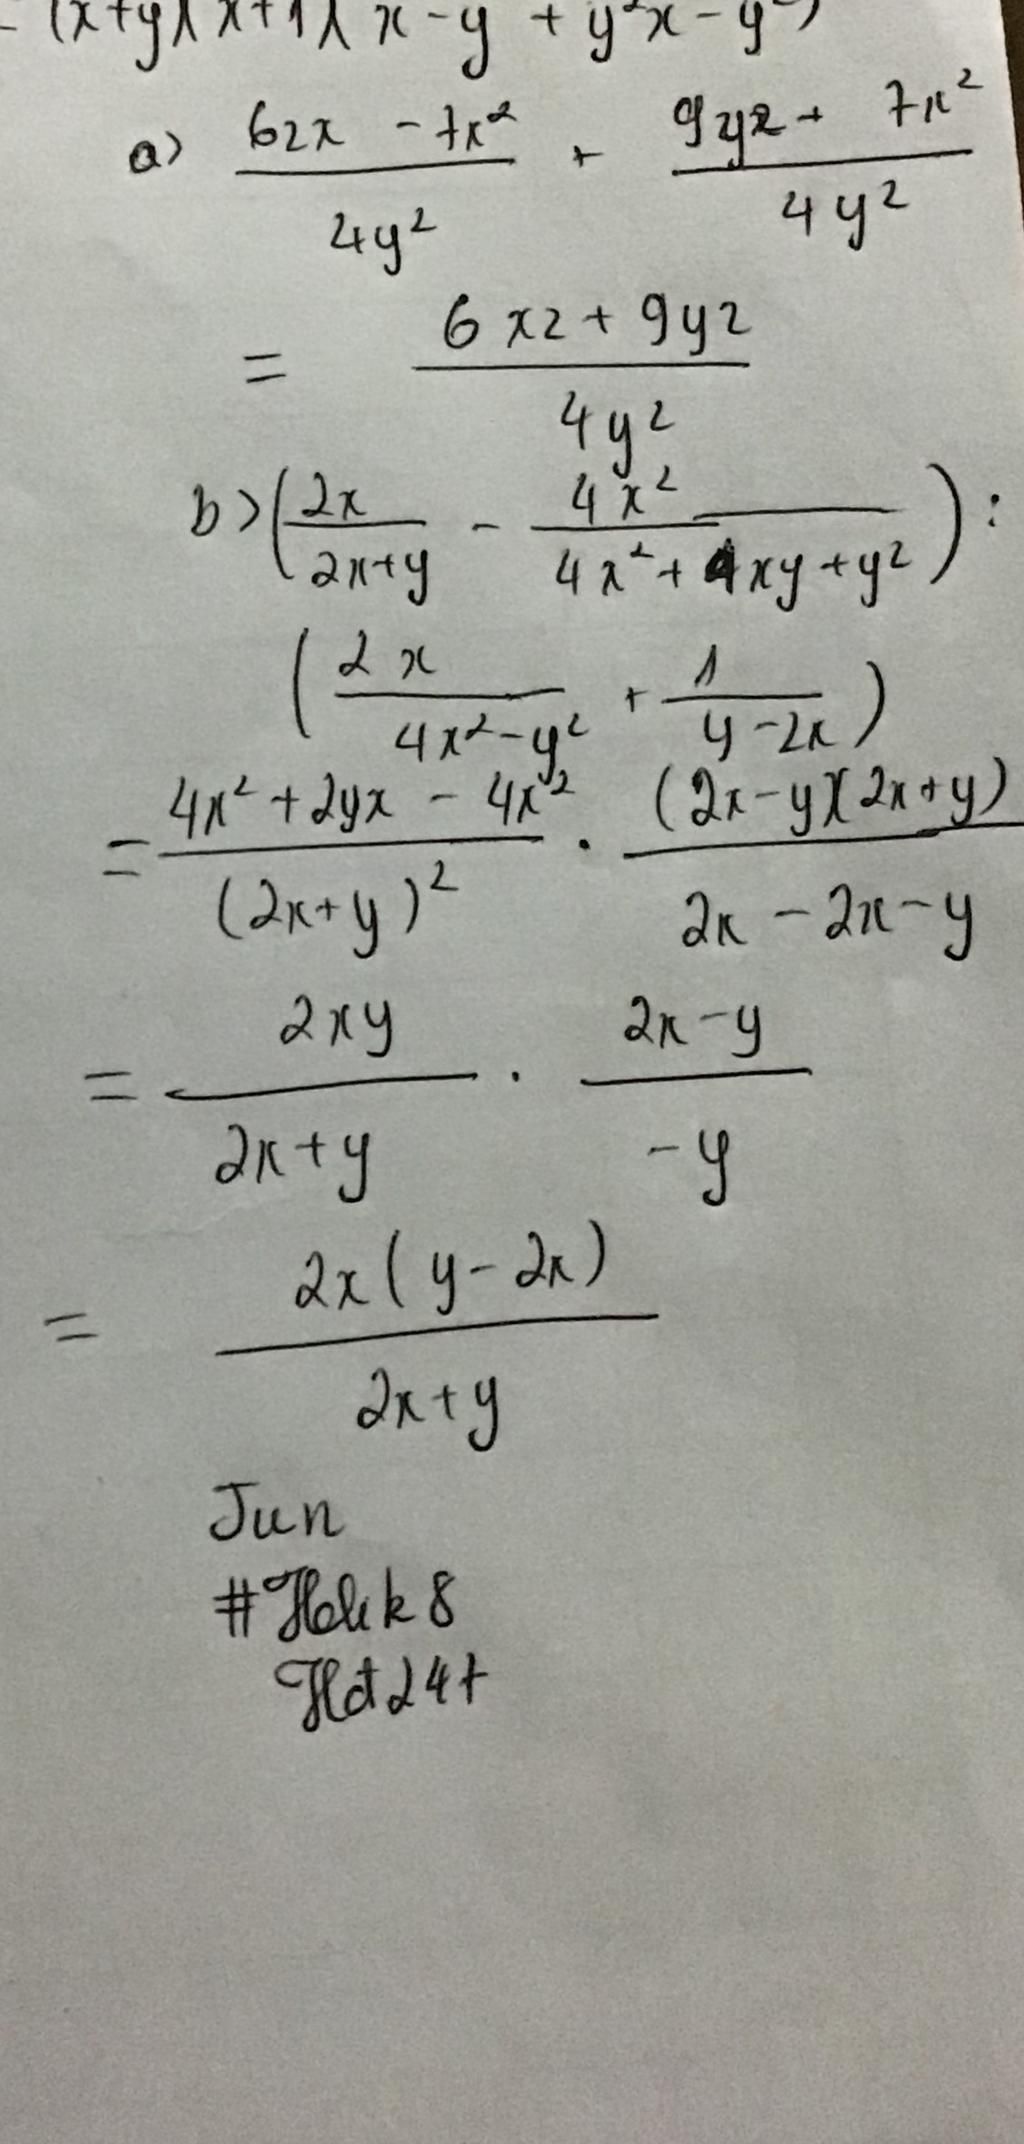 = (x+y)(x+1)(x-y+y²x-y²)
a) (6zx - 7x²)/(4y²) + (9yz + 7x²)/(4y²)
= (6xz + 9yz)/(4y²)
b) (2x/(2x+y) - 4x²/(4x²+4xy+y²)) :
(2x/(4x²-y²) + 1/(y-2x))
= (4x²+2yx-4x²)/(2x+y)² . (2x-y)(2x+y)/(2x-2x-y)
= 2xy/(2x+y) . (2x-y)/(-y)
= 2x(y-2x)/(2x+y)
Jun